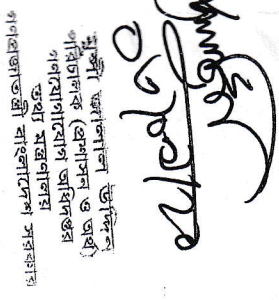 মুন্সী জালাল উদ্দিন
পরিচালক (প্রশাসন ও অর্থ)
গণযোগাযোগ অধিদপ্তর
তথ্য মন্ত্রণালয়
গণপ্রজাতন্ত্রী বাংলাদেশ সরকার